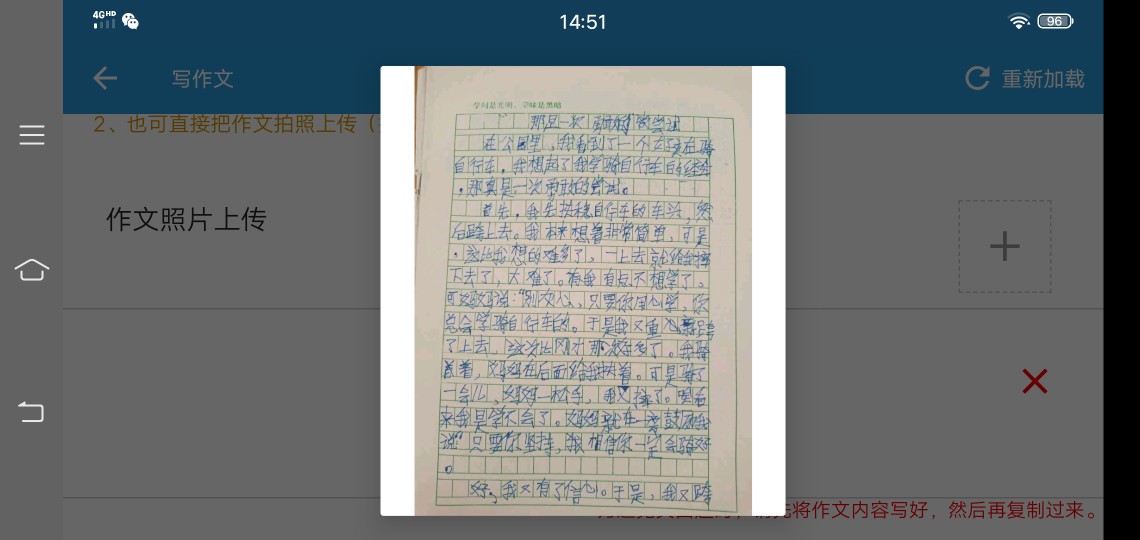 4G HD
14:51
96
写作文
重新加载
2、也可直接把作文拍照上传（
作文照片上传
学问是光明，
味是黑暗
那是一次勇敢的尝试
在公园里，我看到了一个女孩在骑
自行车，我想起了我学骑自行车的经验
，那真是一次勇敢的尝试。
首先，我先扶稳自行车的车头，然
后跨上去。我本来想着非常简单，可是
，这比我想的难多了，一上去就给我摔
下去了，太难了。有我有点不想学了。
可妈妈说：“别灰心，只要你用心学，你
总会学骑自行车的。于是我又重心跨
了上去，这次比刚才那次好多了。我骑
着着，妈妈在后面给我扶着。可是骑了
一会儿，妈妈一松手，我又摔了。看
来我是学不会了。妈妈就在一旁鼓励我
说“只要你坚持，我相信你一定会骑好
。
好，我又有了信心。于是，我又跨
先将作文内容写好，然后再复制过来。